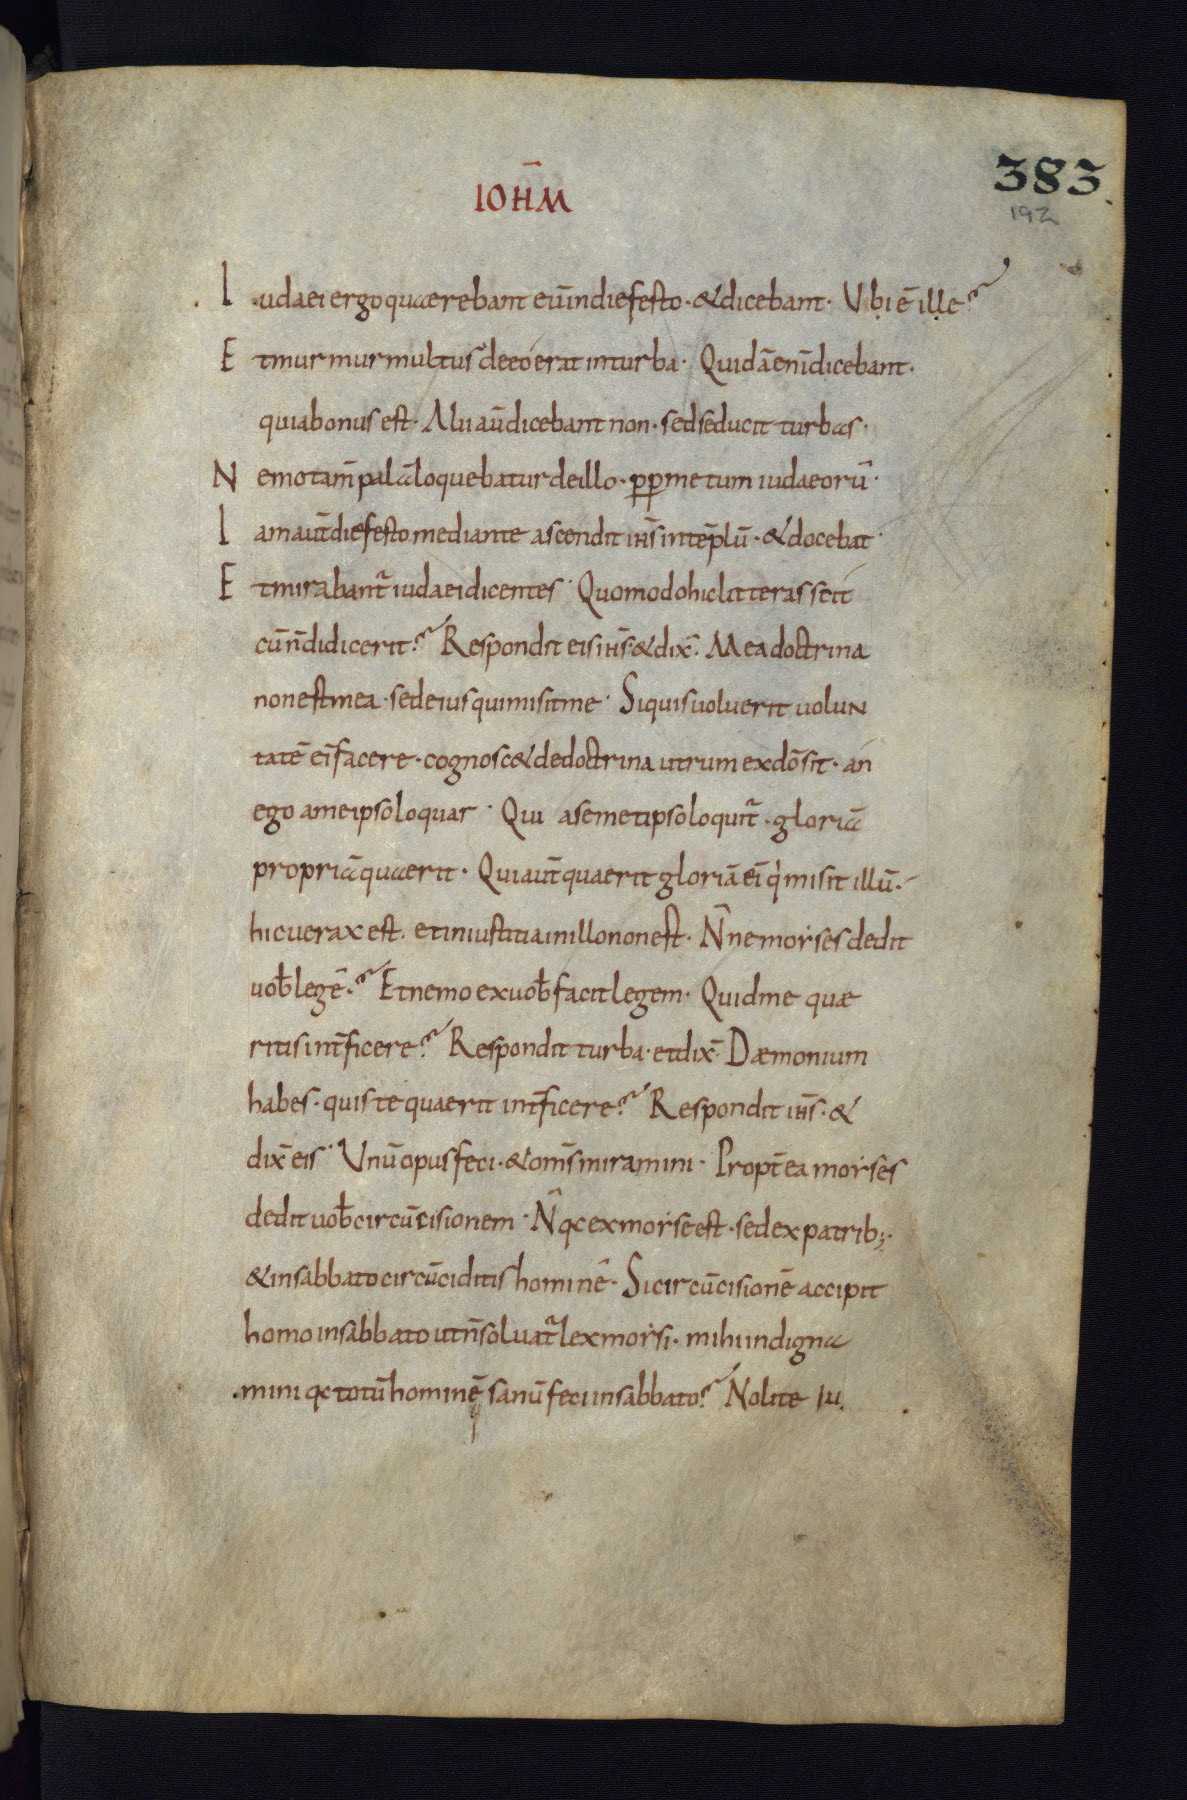 IOHM̄
383
192
Iudaei ergo quaerebant eū in die festo · & dicebant · Ubi ē ille?
Et murmur multus de eo erat in turba · Quidā enī dicebant ·
quia bonus est · Alii aūt dicebant non · sed seducit turbas ·
Nemo tam̄ palā loquebatur de illo · ꝓpṗ metum iudaeorū ·
Iam aūt die festo mediante ascendit ih̄s in tēplū · & docebat ·
Et mirabant̄ iudaei dicentes · Quomodo hic litteras scit
cū n̄ didicerit? Respondit eis ih̄s · & dix̄ · Mea doctrina
non est mea · sed eius qui misit me · Si quis voluerit volun
tatē ei̅ facere · cognosc& de doctrina utrum ex dō sit · an
ego a me ipso loquar · Qui a semetipso loquit̄ · gloriā
propriā quaerit · Qui aūt quaerit gloriā ei̅ qi misit illū ·
hic verax est · et iniustitia in illo non est · N̄ne moyses dedit
vob̄ legē? Et nemo ex vob̄ facit legem · Quid me quae
ritis int̄ficere? Respondit turba · et dix̄ · Daemonium
habes · quis te quaerit int̄ficere? Respondit ih̄s · &
dix̄ eis · Unū opus feci · & om̄s miramini · Propt̄ea moyses
dedit vob̄ circūcisionem · N̄ qc ex moyse est · sed ex patrib; ·
& in sabbato circūciditis hominē · Si circūcisionē accipit
homo in sabbato ut n̄ solvat̄ lex moysi · mihi indigna
mini qc totū hominē sanū feci in sabbato? Nolite iu